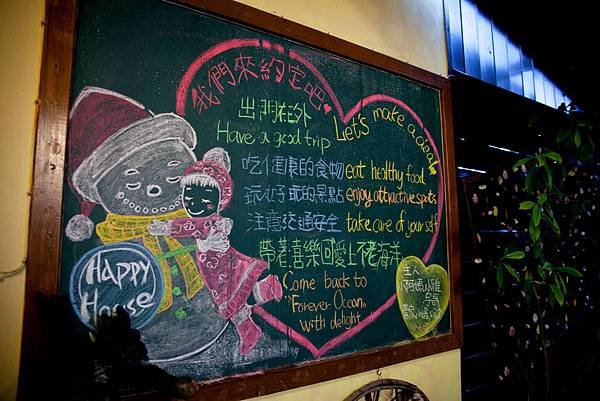 我們來約定吧♥
Let's make a deal
出門在外
Have a good trip
吃健康的食物 eat healthy food
玩好玩的景點 enjoy attractive spots
注意交通安全 take care of yourself
帶著喜樂回愛上老海洋
Come back to
"Forever Ocean"
with delight
HAPPY
House
主人